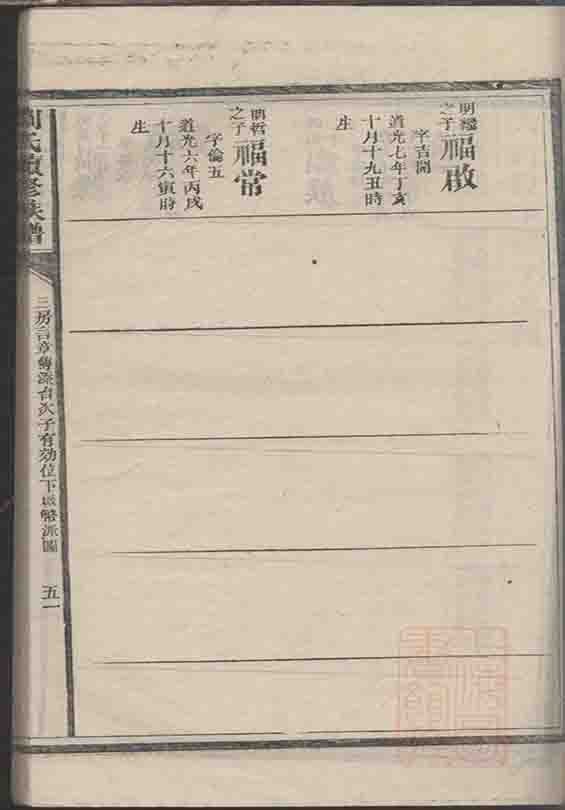 明繼之子
福啟
字吉開
道光七年丁亥
十月十九丑時
生
明哲之子
福常
字倫五
道光六年丙戌
十月十六寅時
生
劉氏續修族譜
三房言章傳添台次子有効位下
派圖
五一